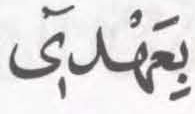 بِعَهْدٖىٓ